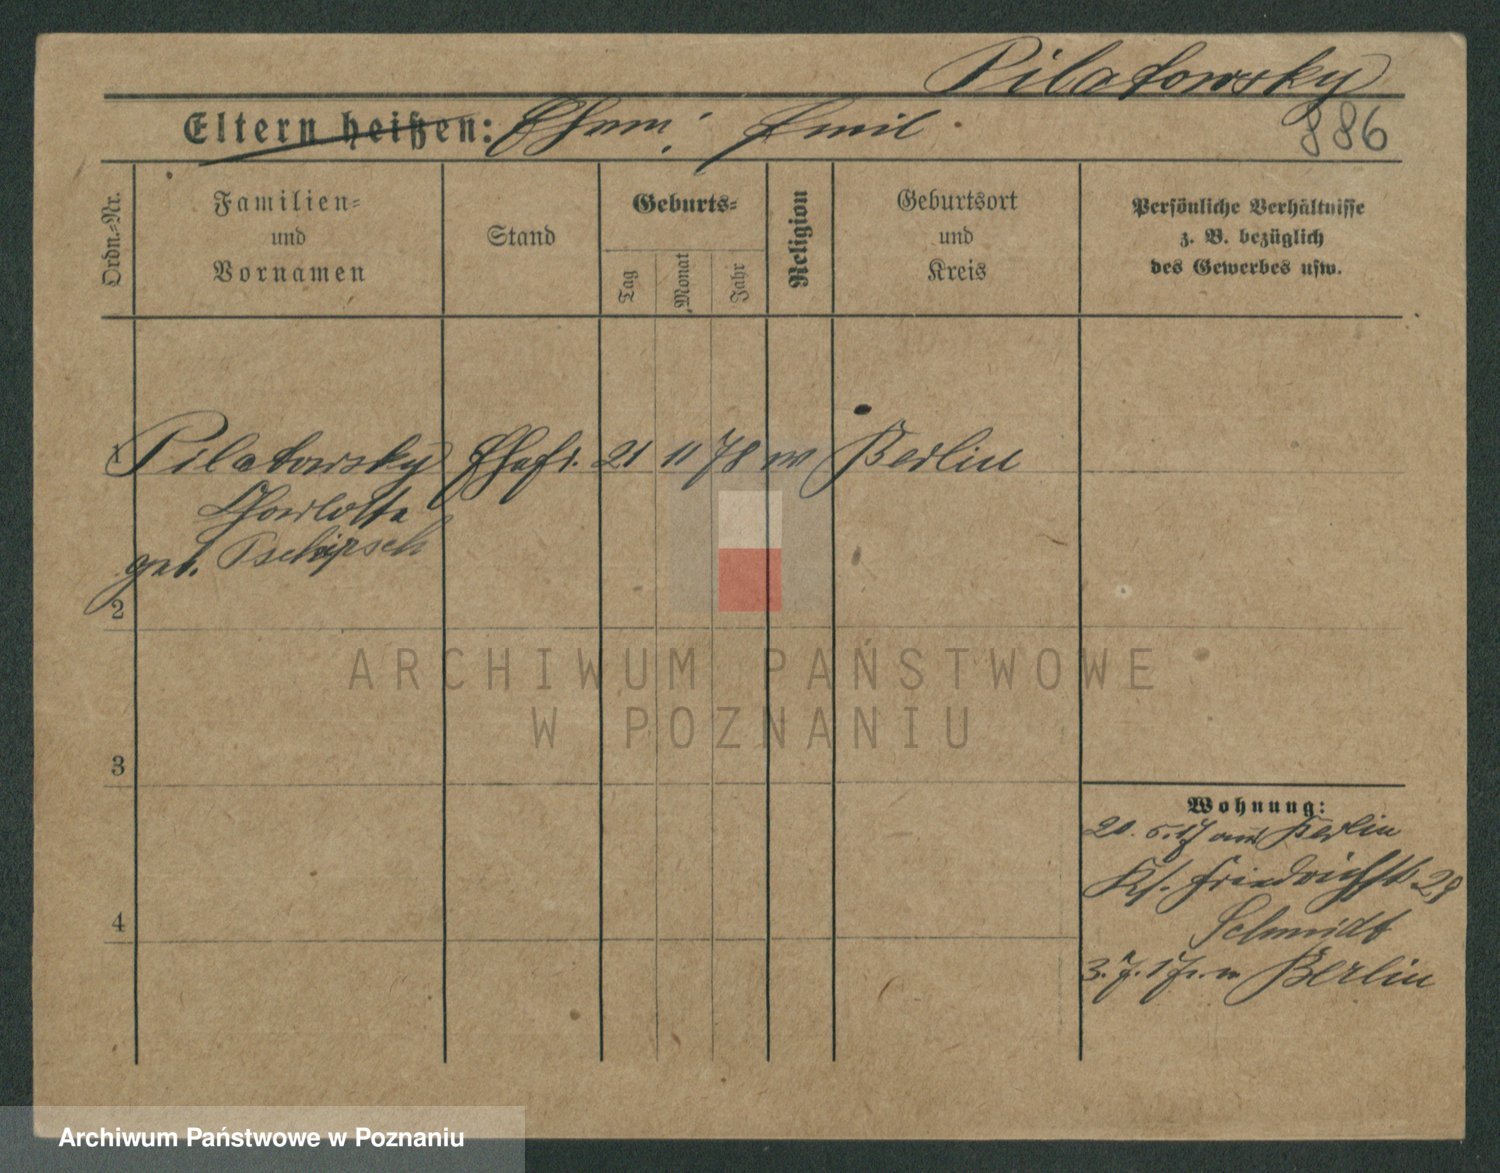 Pilatowsky
886
Eltern heißen: Ehem: Emil.
Ordn.=Nr.
Familien=
und
Vornamen
Stand
Geburts=
Tag
Monat
Jahr
Religion
Geburtsort
und
Kreis
Persönliche Verhältnisse
z. B. bezüglich
des Gewerbes usw.
1 Pilatowsky Ehefr. 21 11 78 Berlin
Charlotte
geb. Pschipsch
2
3
4
Wohnung:
20. 5. 17 aus Berlin
Friedrichstr. 29
Schmidt
3. 7. 17. n Berlin
ARCHIWUM PAŃSTWOWE
W POZNANIU
Archiwum Państwowe w Poznaniu